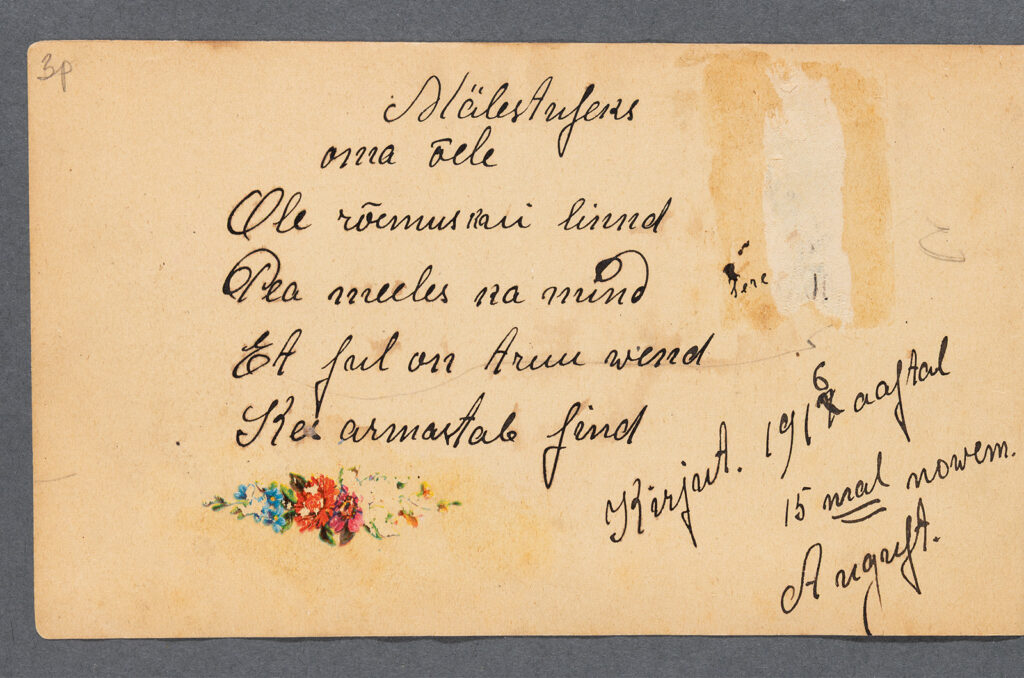 3p
Mälestuſeks
oma õele
Ole rõemus kui linnd
Pea meeles ka mind
Et ſul on truu wend
Kes armastab ſind
Kirjut. 1916 aaſtal
15 mal nowem.
Auguſt.